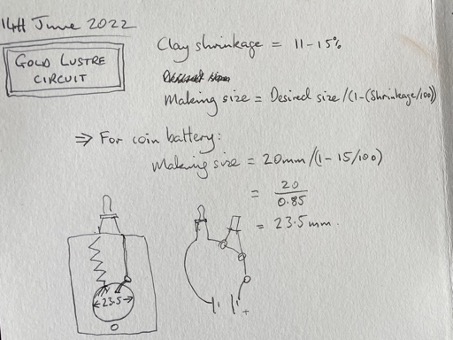 14th June 2022
GOLD LUSTRE
CIRCUIT
Clay shrinkage = 11-15%
Making size = Desired size /(1-(Shrinkage/100))
⇒ For coin battery:
Making size = 20mm/(1-15/100)
= 20
0.85
= 23.5mm.
23.5
+